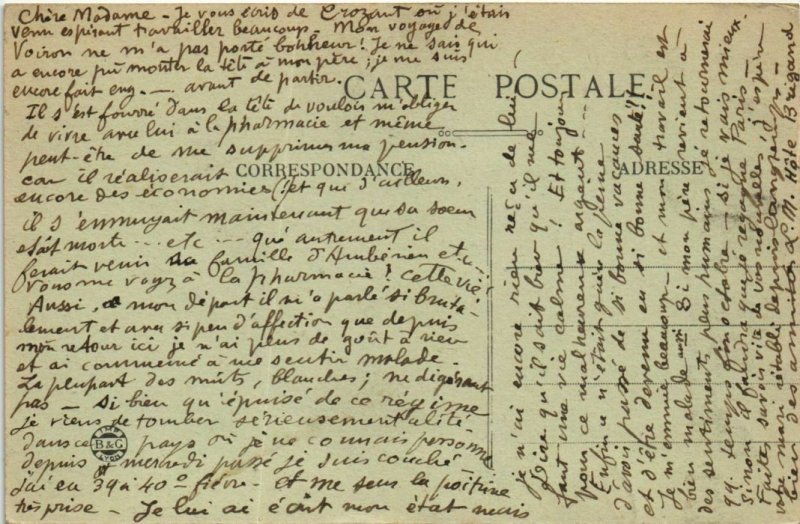 Chère Madame - Je vous écris de Crozant où j'étais
venu espérant travailler beaucoup - Mon voyage de
Voiron ne m'a pas porté bonheur! Je ne sais qui
a encore pu monter la tête à mon père; je me suis
encore fait eng. — avant de partir.
Il s'est fourré dans la tête de vouloir m'obliger
de vivre avec lui à la pharmacie et même
peut-être de me supprimer ma pension.
car il réaliserait
encore des économies (et que d'ailleurs,
il s'ennuyait maintenant que sa soeur
était morte ... etc ... que autrement il
ferait venir la famille d'Ambérieu etc.
Vous me voyez à la pharmacie! cette vie!
Aussi, à mon départ il m'a parlé si bruta-
lement et avec si peu d'affection que depuis
mon retour ici je n'ai plus de goût à rien
et ai commencé à me sentir malade.
La plupart des nuits, blanches; ne digérant
pas — si bien qu'épuisé de ce régime
je viens de tomber sérieusement alité
dans ce pays où je ne connais personne
depuis mercredi passé je suis couché
J'ai eu 39 à 40° fièvre. et me sens la poitrine
très prise. - Je lui ai écrit mon état mais
CARTE POSTALE
CORRESPONDANCE
ADRESSE
IMP.
B&G
LYON
je n'ai encore rien reçu de lui!
Dire qu'il sait bien qu'il me
faut une vie calme! Et toujours
pour ce malheureux argent —
Enfin ce n'était guère la peine
d'avoir passé de si bonnes vacances
et d'être devenu en si bonne santé!!
Je m'ennuie beaucoup — et mon travail est
bien malade aussi Si mon père revient à
des sentiments plus humains je retournerai
qq. temps fin octobre — si je vais mieux.
Sinon il faudra que je regagne Paris —
Faites savoir vite de vos nouvelles; j'espère
votre mari rétabli depuis longtemps —
bien des amitiés à M. Hoïe Brigand